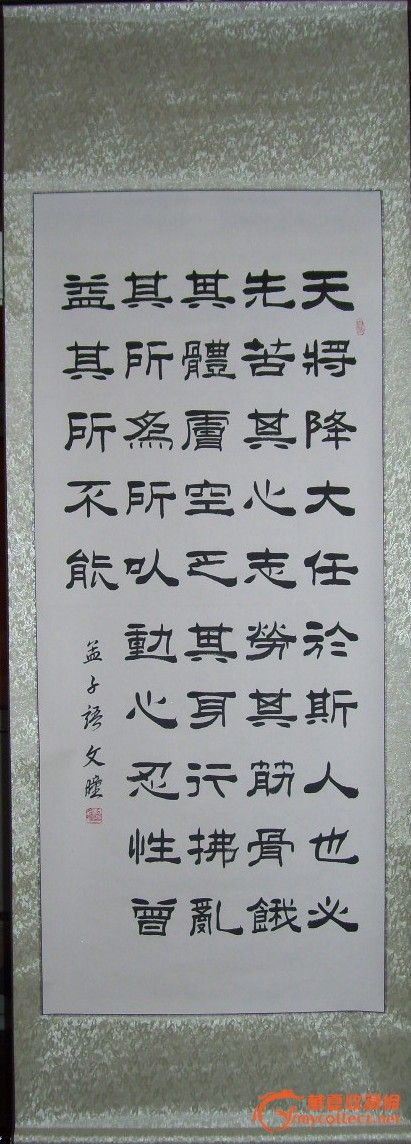 天將降大任於斯人也必
先苦其心志勞其筋骨餓
其體膚空乏其身行拂亂
其所為所以動心忍性曾
益其所不能
孟子語 文
華夏收藏網
mycollect.net